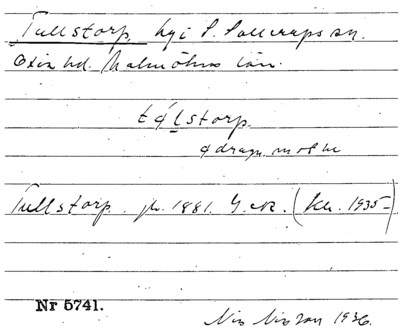 Tullstorp, by i S. Sallerups sn.
Oxie hd. Malmöhus län.
tɑ́lstorp.
Tullstorp. jb. 1881. G.i.R. (Ku. 1935-)
Nr 5741.
Nils Nilsson 1936.